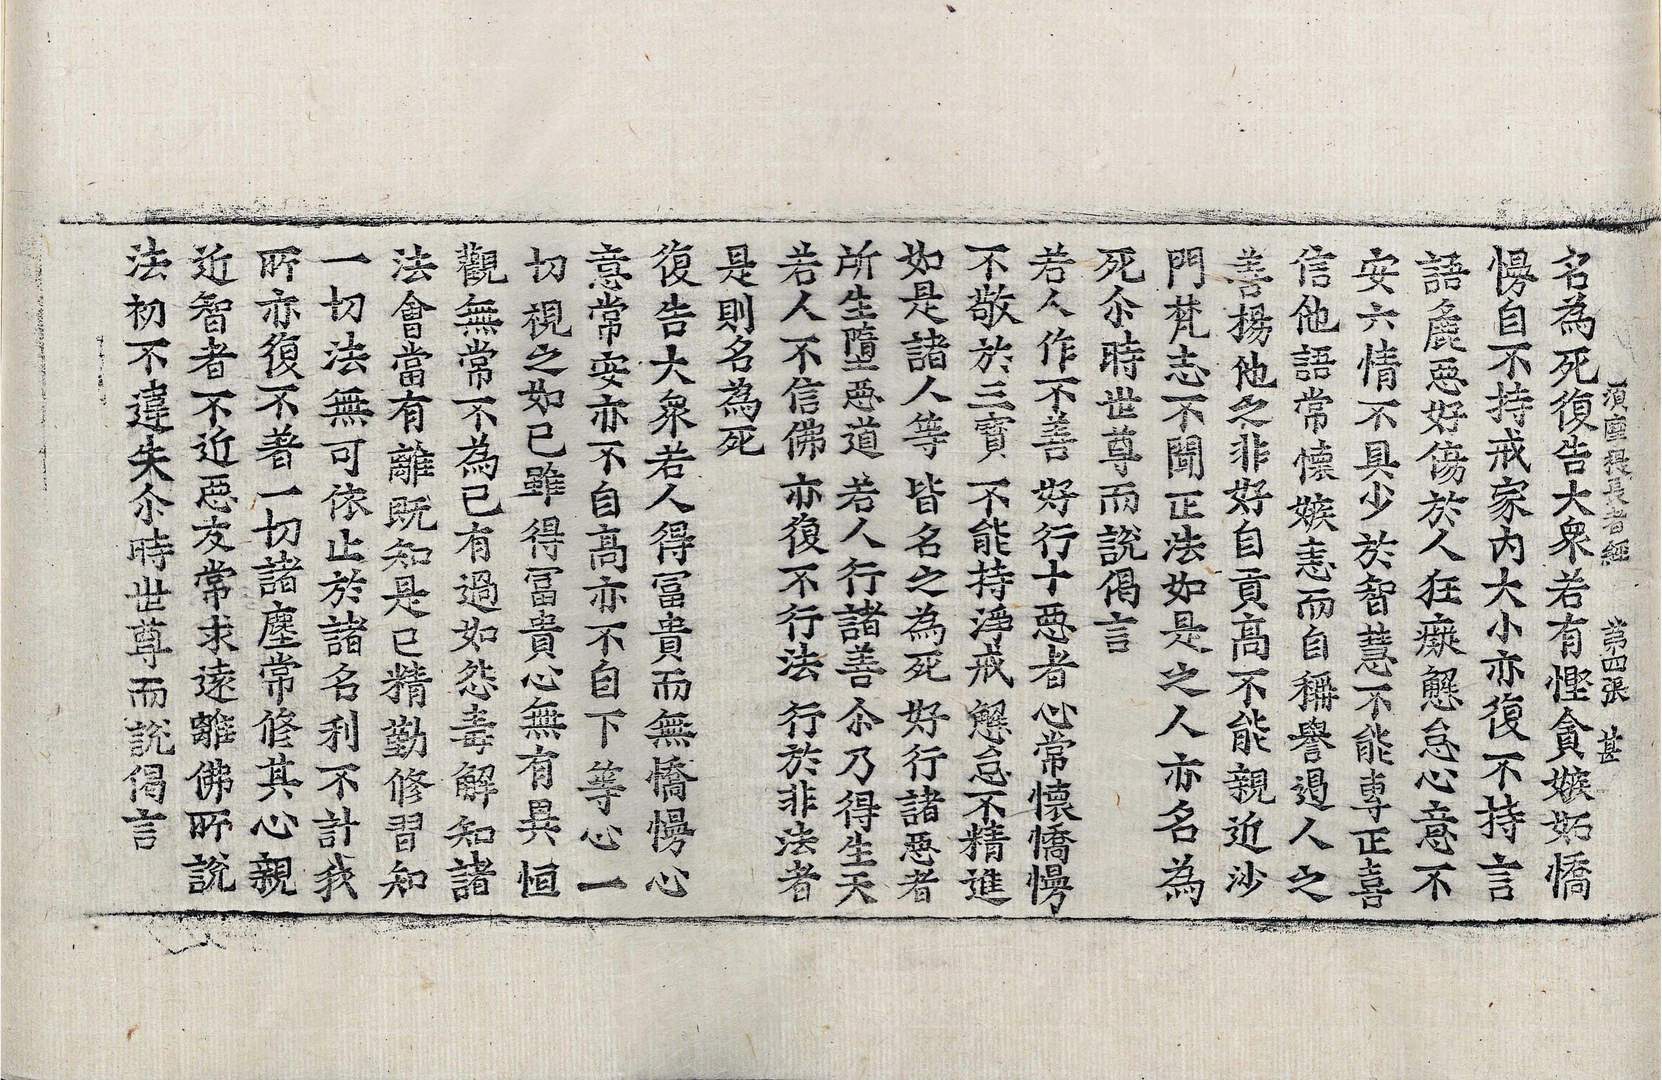 須摩提長者經　第四張　甚
名為死復告大衆若有慳貪嫉妬憍
慢自不持戒家內大小亦復不持言
語麁惡好傷於人狂癡懈怠心意不
安六情不具少於智慧不能專正喜
信他語常懷嫉恚而自稱譽過人之
善揚他之非好自貢高不能親近沙
門梵志不聞正法如是之人亦名為
死尒時世尊而說偈言
若人作不善　好行十惡者　心常懷憍慢
不敬於三寶　不能持淨戒　懈怠不精進
如是諸人等　皆名之為死　好行諸惡者
所生墮惡道　若人行諸善　尒乃得生天
若人不信佛　亦復不行法　行於非法者
是則名為死
復告大衆若人得冨貴而無憍慢心
意常安亦不自高亦不自下等心一
切視之如己雖得冨貴心無有異恒
觀無常不為己有過如怨毒解知諸
法會當有離既知是已精勤修習知
一切法無可依止於諸名利不計我
所亦復不著一切諸塵常修其心親
近智者不近惡友常求遠離佛所說
法初不違失尒時世尊而說偈言